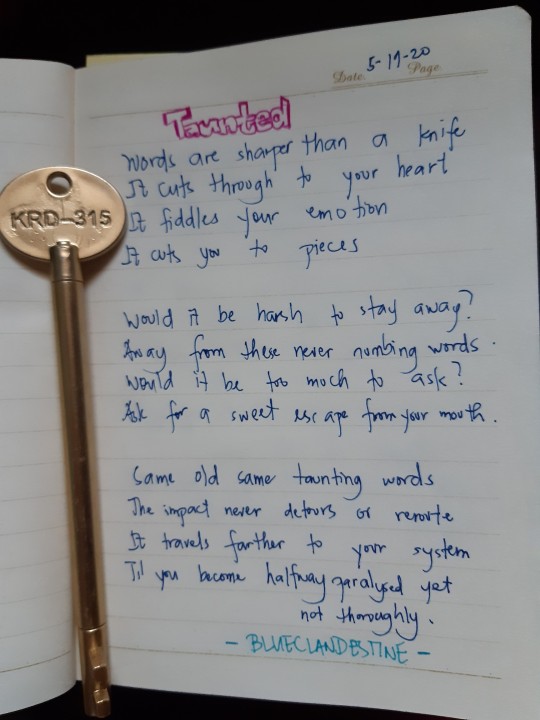 5-19-20
Date Page
Taunted
Words are sharper than a knife
It cuts through to your heart
KRD-315
It fiddles your emotion
It cuts you to pieces
Would it be harsh to stay away?
Away from these never numbing words.
Would it be too much to ask?
Ask for a sweet escape from your mouth.
Same old same taunting words
The impact never detours or reroute
It travels farther to your system
Til you become halfway paralysed yet
not thoroughly.
- BLUECLANDESTINE -